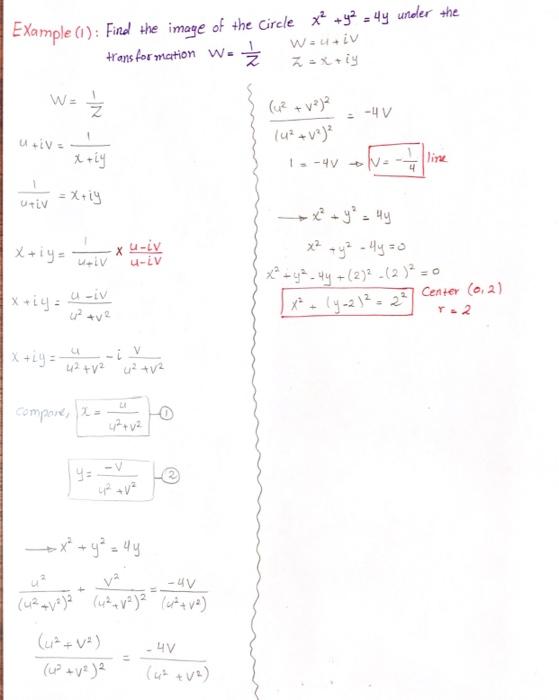 Example (1): Find the image of the Circle x² + y² = 4y under the
transformation W = 1/Z W = u + iV
Z = x + iy
W = 1/Z
u + iv = 1/(x + iy)
1/(u + iv) = x + iy
x + iy = 1/(u + iv) × (u - iv)/(u - iv)
x + iy = (u - iv)/(u² + v²)
x + iy = u/(u² + v²) - i v/(u² + v²)
compare, x = u/(u² + v²) ①
y = -v/(u² + v²) ②
→ x² + y² = 4y
u²/(u² + v²)² + v²/(u² + v²)² = -4v/(u² + v²)
(u² + v²)/(u² + v²)² = -4v/(u² + v²)
(u² + v²)²/(u² + v²)² = -4V
1 = -4v → V = -1/4 line
→ x² + y² = 4y
x² + y² - 4y = 0
x² + y² - 4y + (2)² - (2)² = 0
x² + (y - 2)² = 2² Center (0, 2)
r = 2